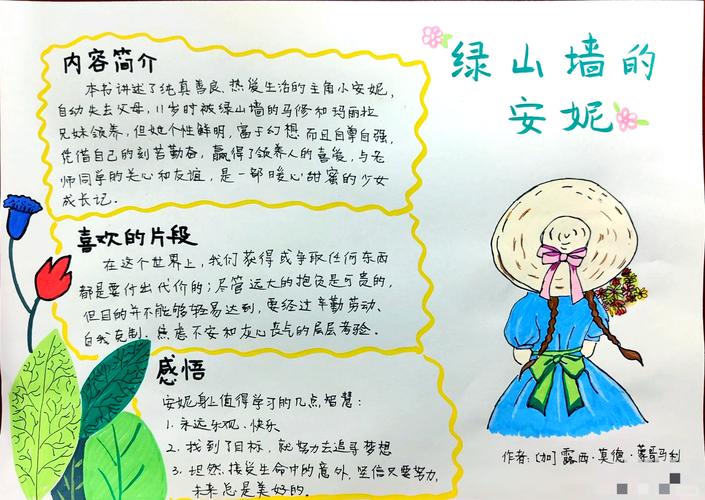 绿山墙的
安妮
内容简介
本书讲述了纯真善良、热爱生活的主角小安妮,
自幼失去父母,11岁时被绿山墙的马修和玛丽拉
兄妹领养,但她个性鲜明,富于幻想而且自尊自强,
凭借自己的刻苦勤奋,赢得了领养人的喜爱,与老
师同学的关心和友谊,是一部暖心甜蜜的少女
成长记.
喜欢的片段
在这个世界上,我们获得或争取任何东西
都是要付出代价的;尽管远大的抱负是可贵的,
但目的并不能够轻易达到,要经过辛勤劳动、
自我克制、焦虑不安和灰心丧气的层层考验.
感悟
安妮身上值得学习的几点智慧:
1.永远乐观、快乐
2.找到了目标,就努力去追寻梦想
3.坦然接受生命中的意外,坚信只要努力,
未来总是美好的.
作者:[加]露西·莫德·蒙哥马利